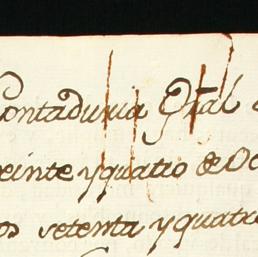 Contaduria Gral
veinte y quatro de Oc
os setenta y quatro